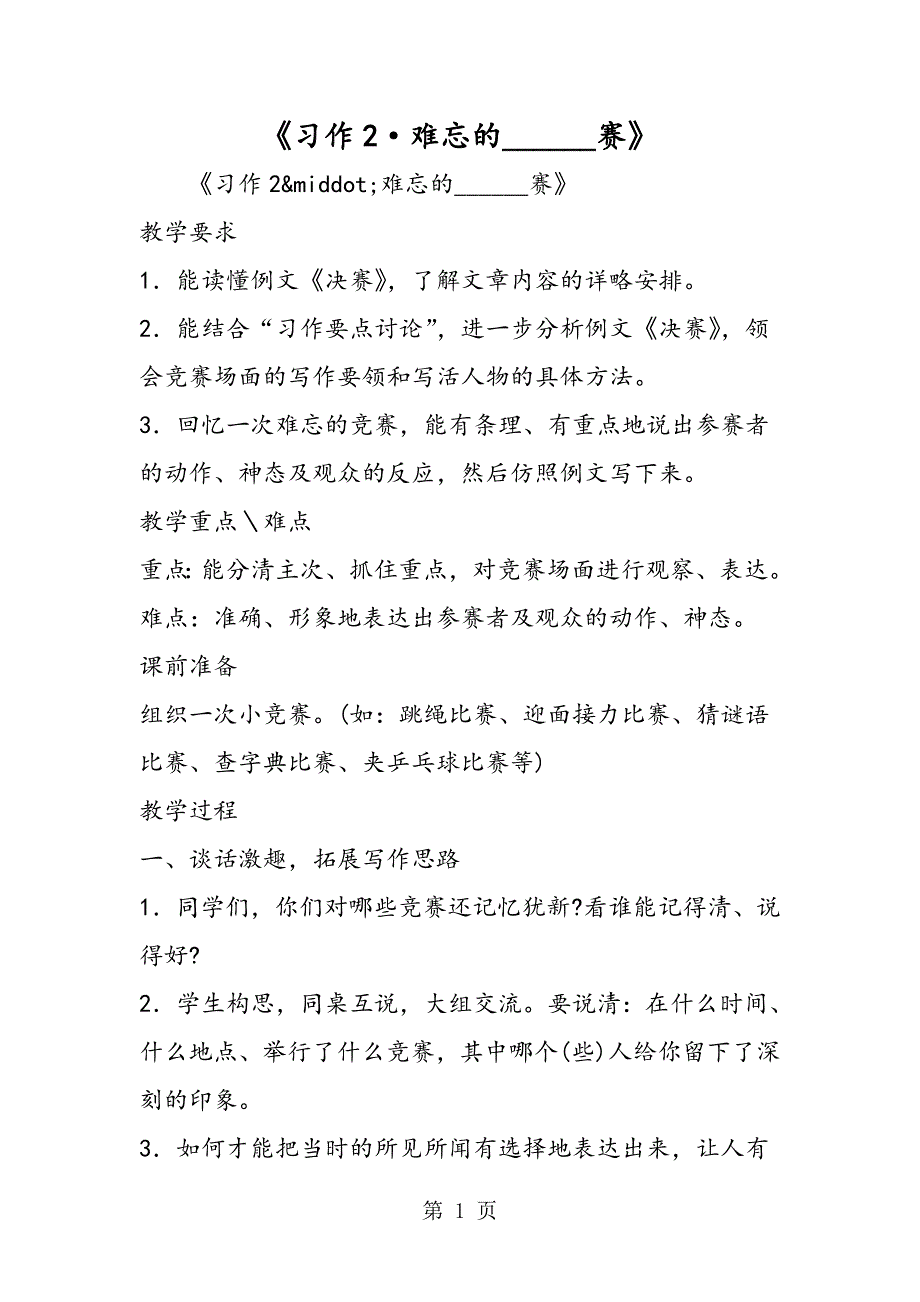 《习作2·难忘的______赛》
《习作2&middot;难忘的______赛》
教学要求
1．能读懂例文《决赛》，了解文章内容的详略安排。
2．能结合“习作要点讨论”，进一步分析例文《决赛》，领
会竞赛场面的写作要领和写活人物的具体方法。
3．回忆一次难忘的竞赛，能有条理、有重点地说出参赛者
的动作、神态及观众的反应，然后仿照例文写下来。
教学重点＼难点
重点：能分清主次、抓住重点，对竞赛场面进行观察、表达。
难点：准确、形象地表达出参赛者及观众的动作、神态。
课前准备
组织一次小竞赛。(如：跳绳比赛、迎面接力比赛、猜谜语
比赛、查字典比赛、夹乒乓球比赛等)
教学过程
一、谈话激趣，拓展写作思路
1．同学们，你们对哪些竞赛还记忆犹新?看谁能记得清、说
得好?
2．学生构思，同桌互说，大组交流。要说清：在什么时间、
什么地点、举行了什么竞赛，其中哪个(些)人给你留下了深
刻的印象。
3．如何才能把当时的所见所闻有选择地表达出来，让人有
第 1 页